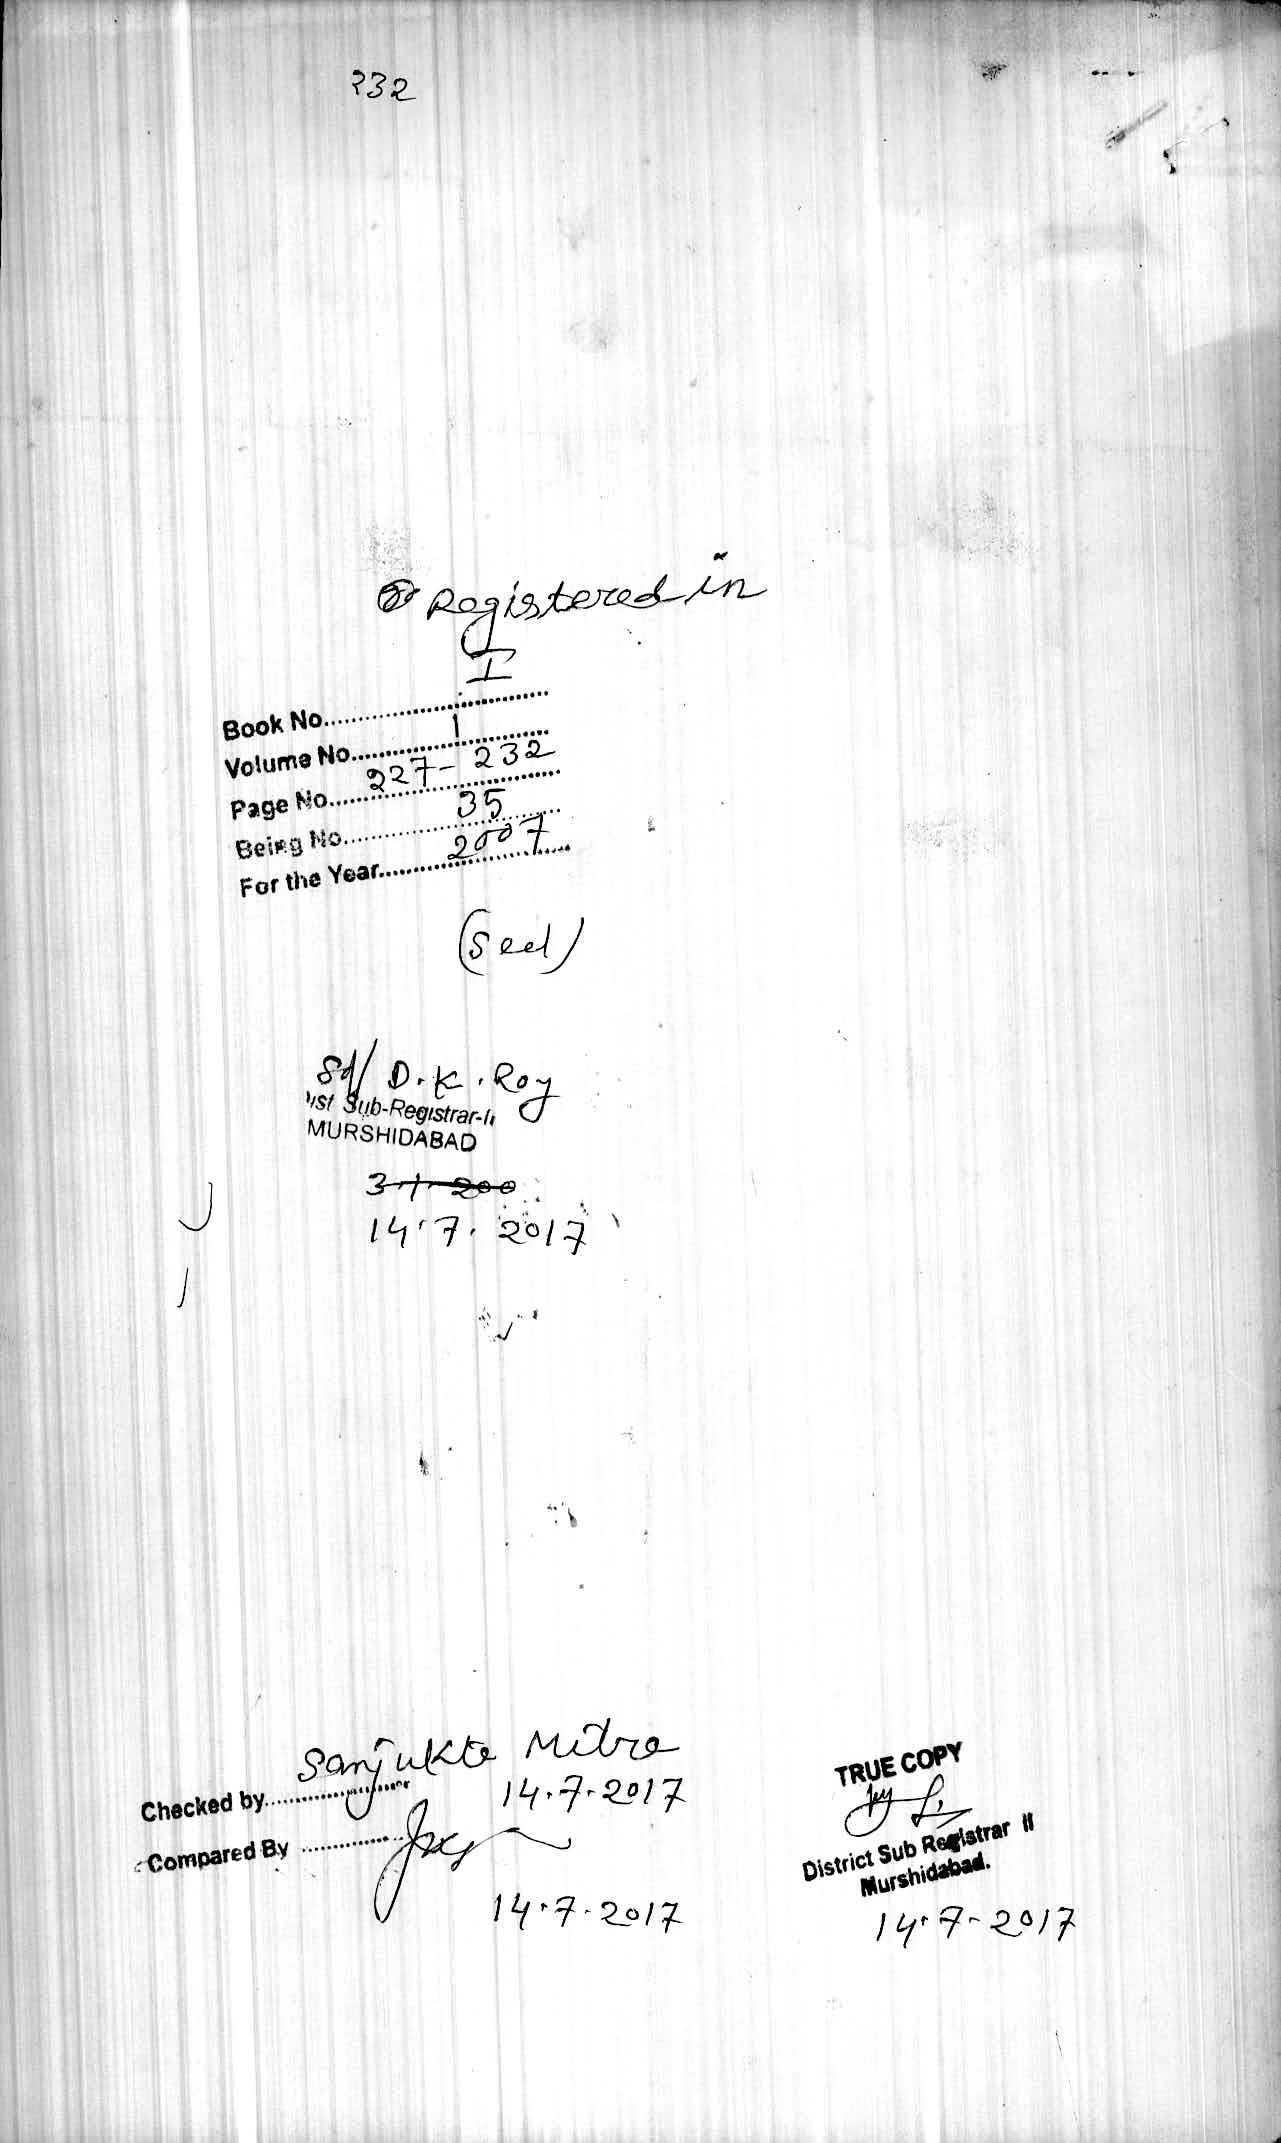 232
Registered in
Book No. I
Volume No. 1
Page No. 227-232
Being No. 35
For the Year. 2007
(Seal)
Sd/ D.K. Roy
Dist Sub-Registrar-II
MURSHIDABAD
3-1-200
14.7.2017
Sanjukta Mitra
Checked by
14.7.2017
Compared By
14.7.2017
TRUE COPY
District Sub Registrar II
Murshidabad.
14.7-2017